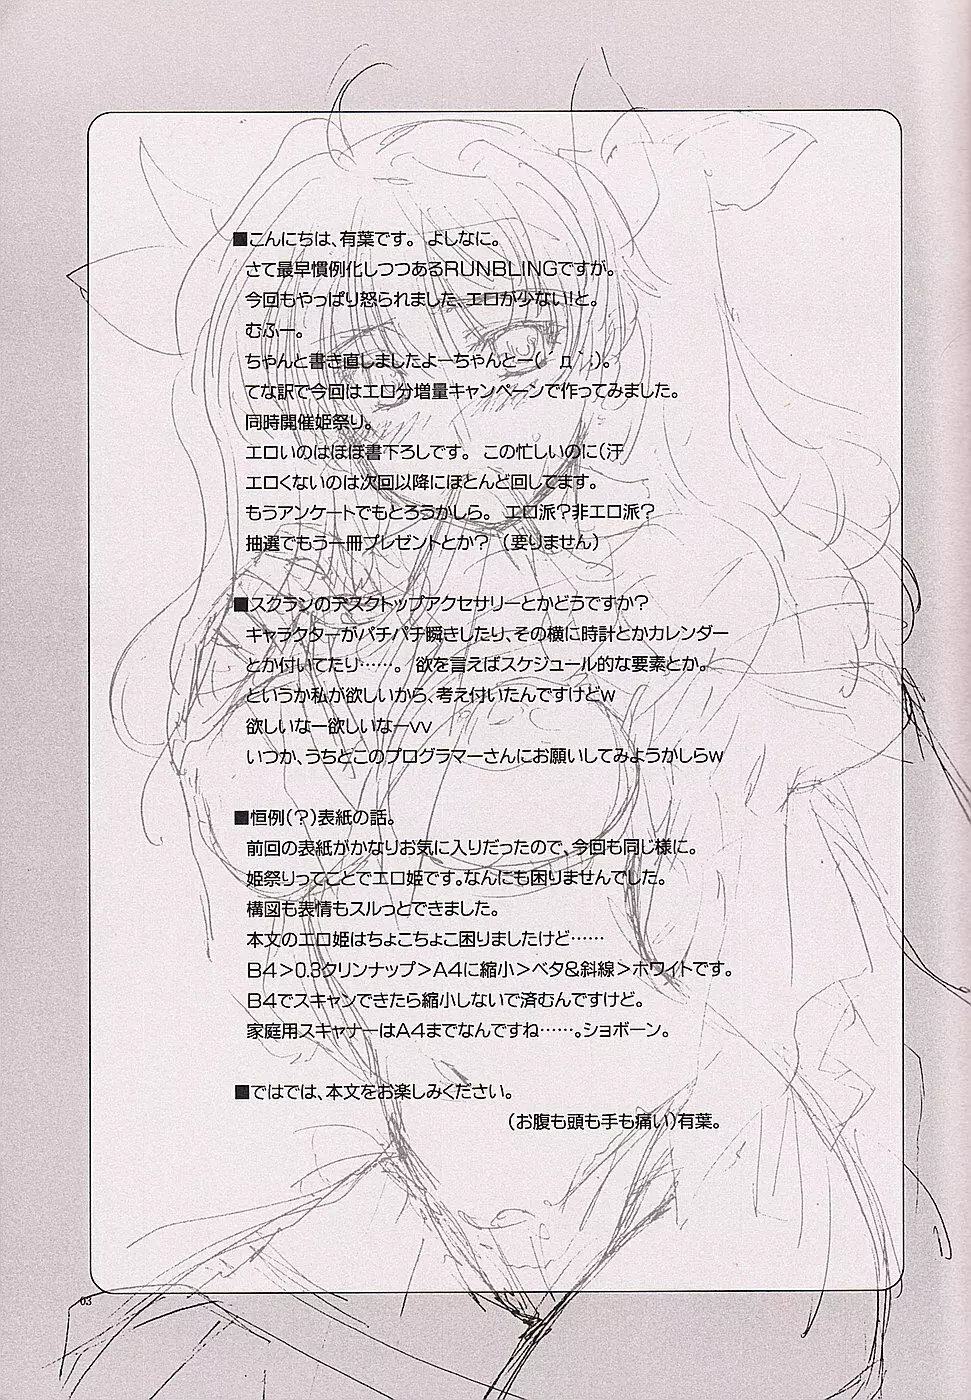 ■こんにちは、有葉です。 よしなに。
さて最早慣例化しつつあるRUNBLINGですが。
今回もやっぱり怒られました、エロが少ない!と。
むふー。
ちゃんと書き直しましたよーちゃんとー(´д`;)。
てな訳で今回はエロ分増量キャンペーンで作ってみました。
同時開催姫祭り。
エロいのはほぼ書下ろしです。 この忙しいのに(汗
エロくないのは次回以降にほとんど回してます。
もうアンケートでもとろうかしら。 エロ派?非エロ派?
抽選でもう一冊プレゼントとか? (要りません)
■スクランのデスクトップアクセサリーとかどうですか?
キャラクターがパチパチ瞬きしたり、その横に時計とかカレンダー
とか付いてたり……。 欲を言えばスケジュール的な要素とか。
というか私が欲しいから、考え付いたんですけどw
欲しいなー欲しいなーvv
いつか、うちとこのプログラマーさんにお願いしてみようかしらw
■恒例(?)表紙の話。
前回の表紙がかなりお気に入りだったので、今回も同じ様に。
姫祭りってことでエロ姫です。なんにも困りませんでした。
構図も表情もスルっとできました。
本文のエロ姫はちょこちょこ困りましたけど……
B4>0.3クリンナップ>A4に縮小>ベタ&斜線>ホワイトです。
B4でスキャンできたら縮小しないで済むんですけど。
家庭用スキャナーはA4までなんですね……。ショボーン。
■ではでは、本文をお楽しみください。
(お腹も頭も手も痛い)有葉。
03